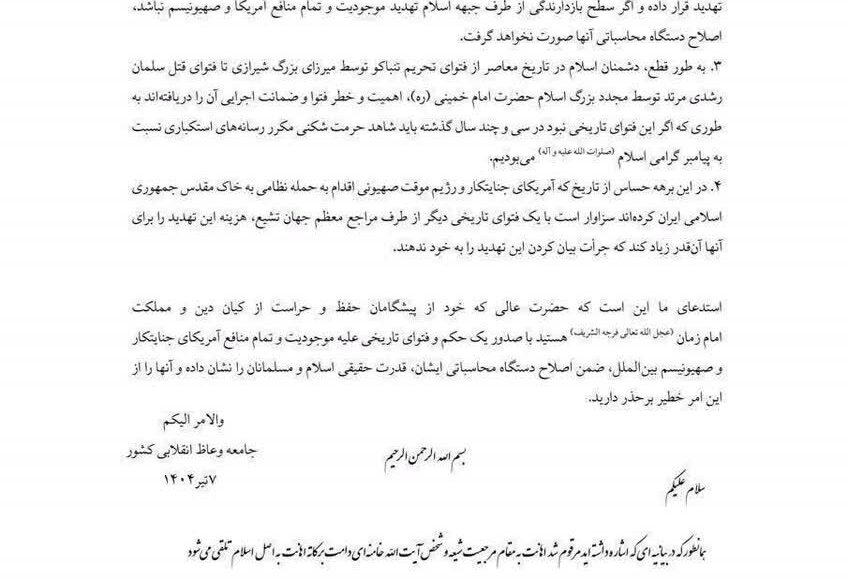 تهدید قرار داده و اگر سطح بازدارندگی از طرف جبهه اسلام تهدید موجودیت و تمام منافع آمریکا و صهیونیسم نباشد،
اصلاح دستگاه محاسباتی آنها صورت نخواهد گرفت.
۳. به طور قطع، دشمنان اسلام در تاریخ معاصر از فتوای تحریم تنباکو توسط میرزای بزرگ شیرازی تا فتوای قتل سلمان
رشدی مرتد توسط مجدد بزرگ اسلام حضرت امام خمینی (ره)، اهمیت و خطر فتوا و ضمانت اجرایی آن را دریافته‌اند به
طوری که اگر این فتوای تاریخی نبود در سی و چند سال گذشته باید شاهد حرمت شکنی مکرر رسانه‌های استکباری نسبت
به پیامبر گرامی اسلام (صلوات الله علیه و آله) می‌بودیم.
۴. در این برهه حساس از تاریخ که آمریکای جنایتکار و رژیم موقت صهیونی اقدام به حمله نظامی به خاک مقدس جمهوری
اسلامی ایران کرده‌اند سزاوار است با یک فتوای تاریخی دیگر از طرف مراجع معظم جهان تشیع، هزینه این تهدید را برای
آنها آن‌قدر زیاد کند که جرأت بیان کردن این تهدید را به خود ندهند.
استدعای ما این است که حضرت عالی که خود از پیشگامان حفظ و حراست از کیان دین و مملکت
امام زمان (عجل الله تعالی فرجه الشریف) هستید با صدور یک حکم و فتوای تاریخی علیه موجودیت و تمام منافع آمریکای جنایتکار
و صهیونیسم بین‌الملل، ضمن اصلاح دستگاه محاسباتی ایشان، قدرت حقیقی اسلام و مسلمانان را نشان داده و آنها را از
این امر خطیر برحذر دارید.
والامر الیکم
جامعه وعاظ انقلابی کشور
۷تیر۱۴۰۴
بسم الله الرحمن الرحیم
سلام علیکم
همانطور که در بیانیه ای که اشاره داشته اید مرقوم شد اهانت به مقام مرجعیت شیعه و شخص آیت الله خامنه ای دامت برکاته اهانت به اصل اسلام تلقی می شود